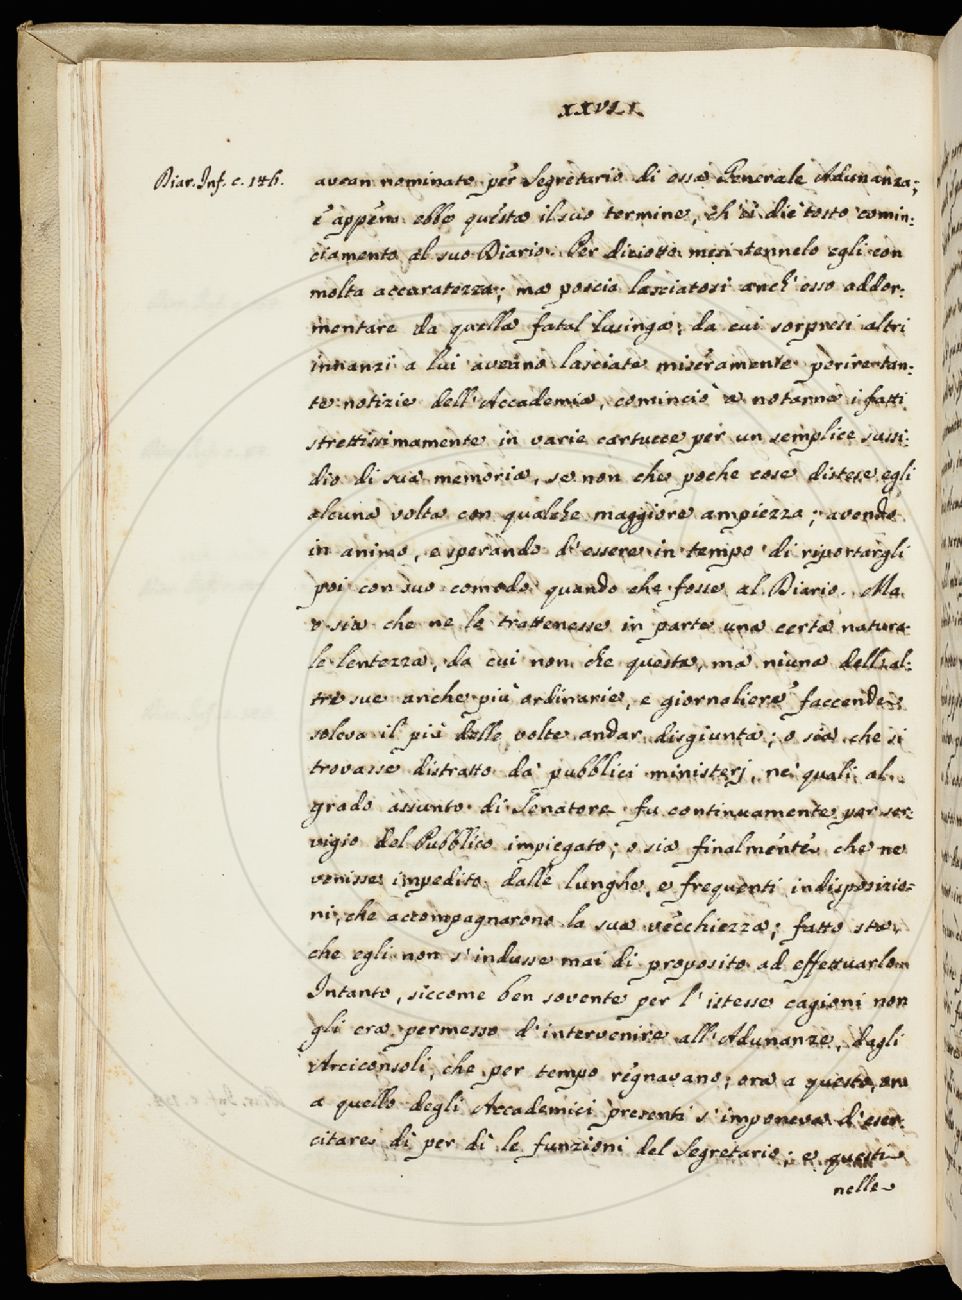 XXVII.
Diar. Inf. c. 146.
avean nominato per Segretario di essa Generale Adunanza;
e appena ebbe questa il suo termine, ch' ei die tosto comin:
ciamento al suo Diario. Per diciotto mesi tennelo egli con
molta accuratezza; ma poscia lasciatosi anch' esso addor:
mentare da quella fatal lusinga, da cui sorpresi altri
innanzi a lui aveano lasciate miseramente perire tan:
te notizie dell' Accademia, cominciò a notarne i fatti
strettissimamente in varie cartucce per un semplice sussi:
dio di sua memoria, se non che poche cose distese egli
alcuna volta con qualche maggiore ampiezza; avendo
in animo, e sperando d' essere in tempo di riportargli
poi con suo comodo quando che fosse al Diario. Ma
o sia che ne le trattenesse in parte una certa natura
le lentezza, da cui non che questa, ma niuna dell' al:
tre sue anche più ordinarie, e giornaliere faccende
soleva il più delle volte andar disgiunta; o sia che si
trovasse distratto da' pubblici ministerj, ne' quali al
grado assunto di Senatore fu continuamente per ser:
vigio del Pubblico impiegato; o sia finalmente che ne
venisse impedito dalle lunghe, e frequenti indisposizio:
ni, che accompagnarono la sua vecchiezza; fatto sta,
che egli non s' indusse mai di proposito ad effettuarlo.
Intanto, siccome ben sovente per l' istesse cagioni non
gli era permesso d' intervenire all' Adunanze, dagli
Arciconsoli, che per tempo regnavano, ora a questo, ora
a quello degli Accademici presenti s' imponeva d' eser:
citare dì per dì le funzioni del Segretario; e questi
nelle